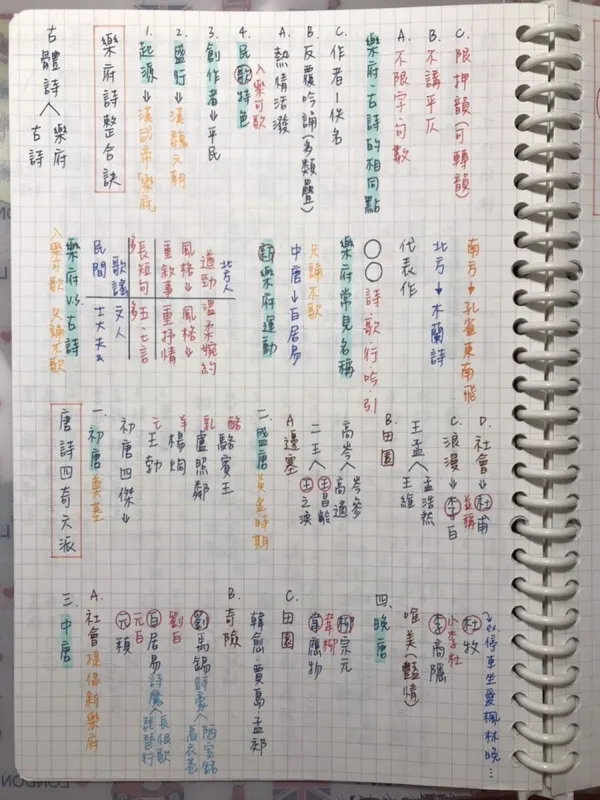 古體詩
樂府
古詩
樂府詩整合訣
1. 起源→漢武帝 樂府
2. 盛行→漢魏六朝
3. 創作者→平民
4. 民歌特色
入樂可歌
A. 熱情活潑
B. 反覆吟誦(多類疊)
C. 作者-佚名
樂府.古詩的相同點
A. 不限字句數
B. 不講平仄
C. 限押韻(可轉韻)
樂府vs.古詩
入樂可歌 只誦不歌
民間歌謠 文人士大夫
多長短句 多五.七言
重敘事 重抒情
風格↓遒勁 風格↓溫柔婉約
北方人
新樂府運動
只誦不歌
中唐→白居易
樂府常見名稱
○○詩.歌.行.吟.引
代表作
北方→木蘭詩
南方→孔雀東南飛
唐詩四奇六派
一、初唐 奠基
初唐四傑↓
王勃
楊炯
盧照鄰
駱賓王
二、盛唐 黃金時期
A 邊塞
二王 王之渙 王昌齡
高岑 高適 岑參
B. 田園
王孟 王維 孟浩然
C. 浪漫→李白
並稱
D. 社會→杜甫
三、中唐
A. 社會 提倡新樂府
元稹
元白
白居易 詩魔 長恨歌 琵琶行
劉白
劉禹錫 詩豪 陋室銘 烏衣巷
B. 奇險
韓愈.賈島.孟郊
C. 田園
韋應物
韋柳
柳宗元
四、晚唐
唯美(豔情)
李商隱
小李杜
杜牧
停車坐愛楓林晚...